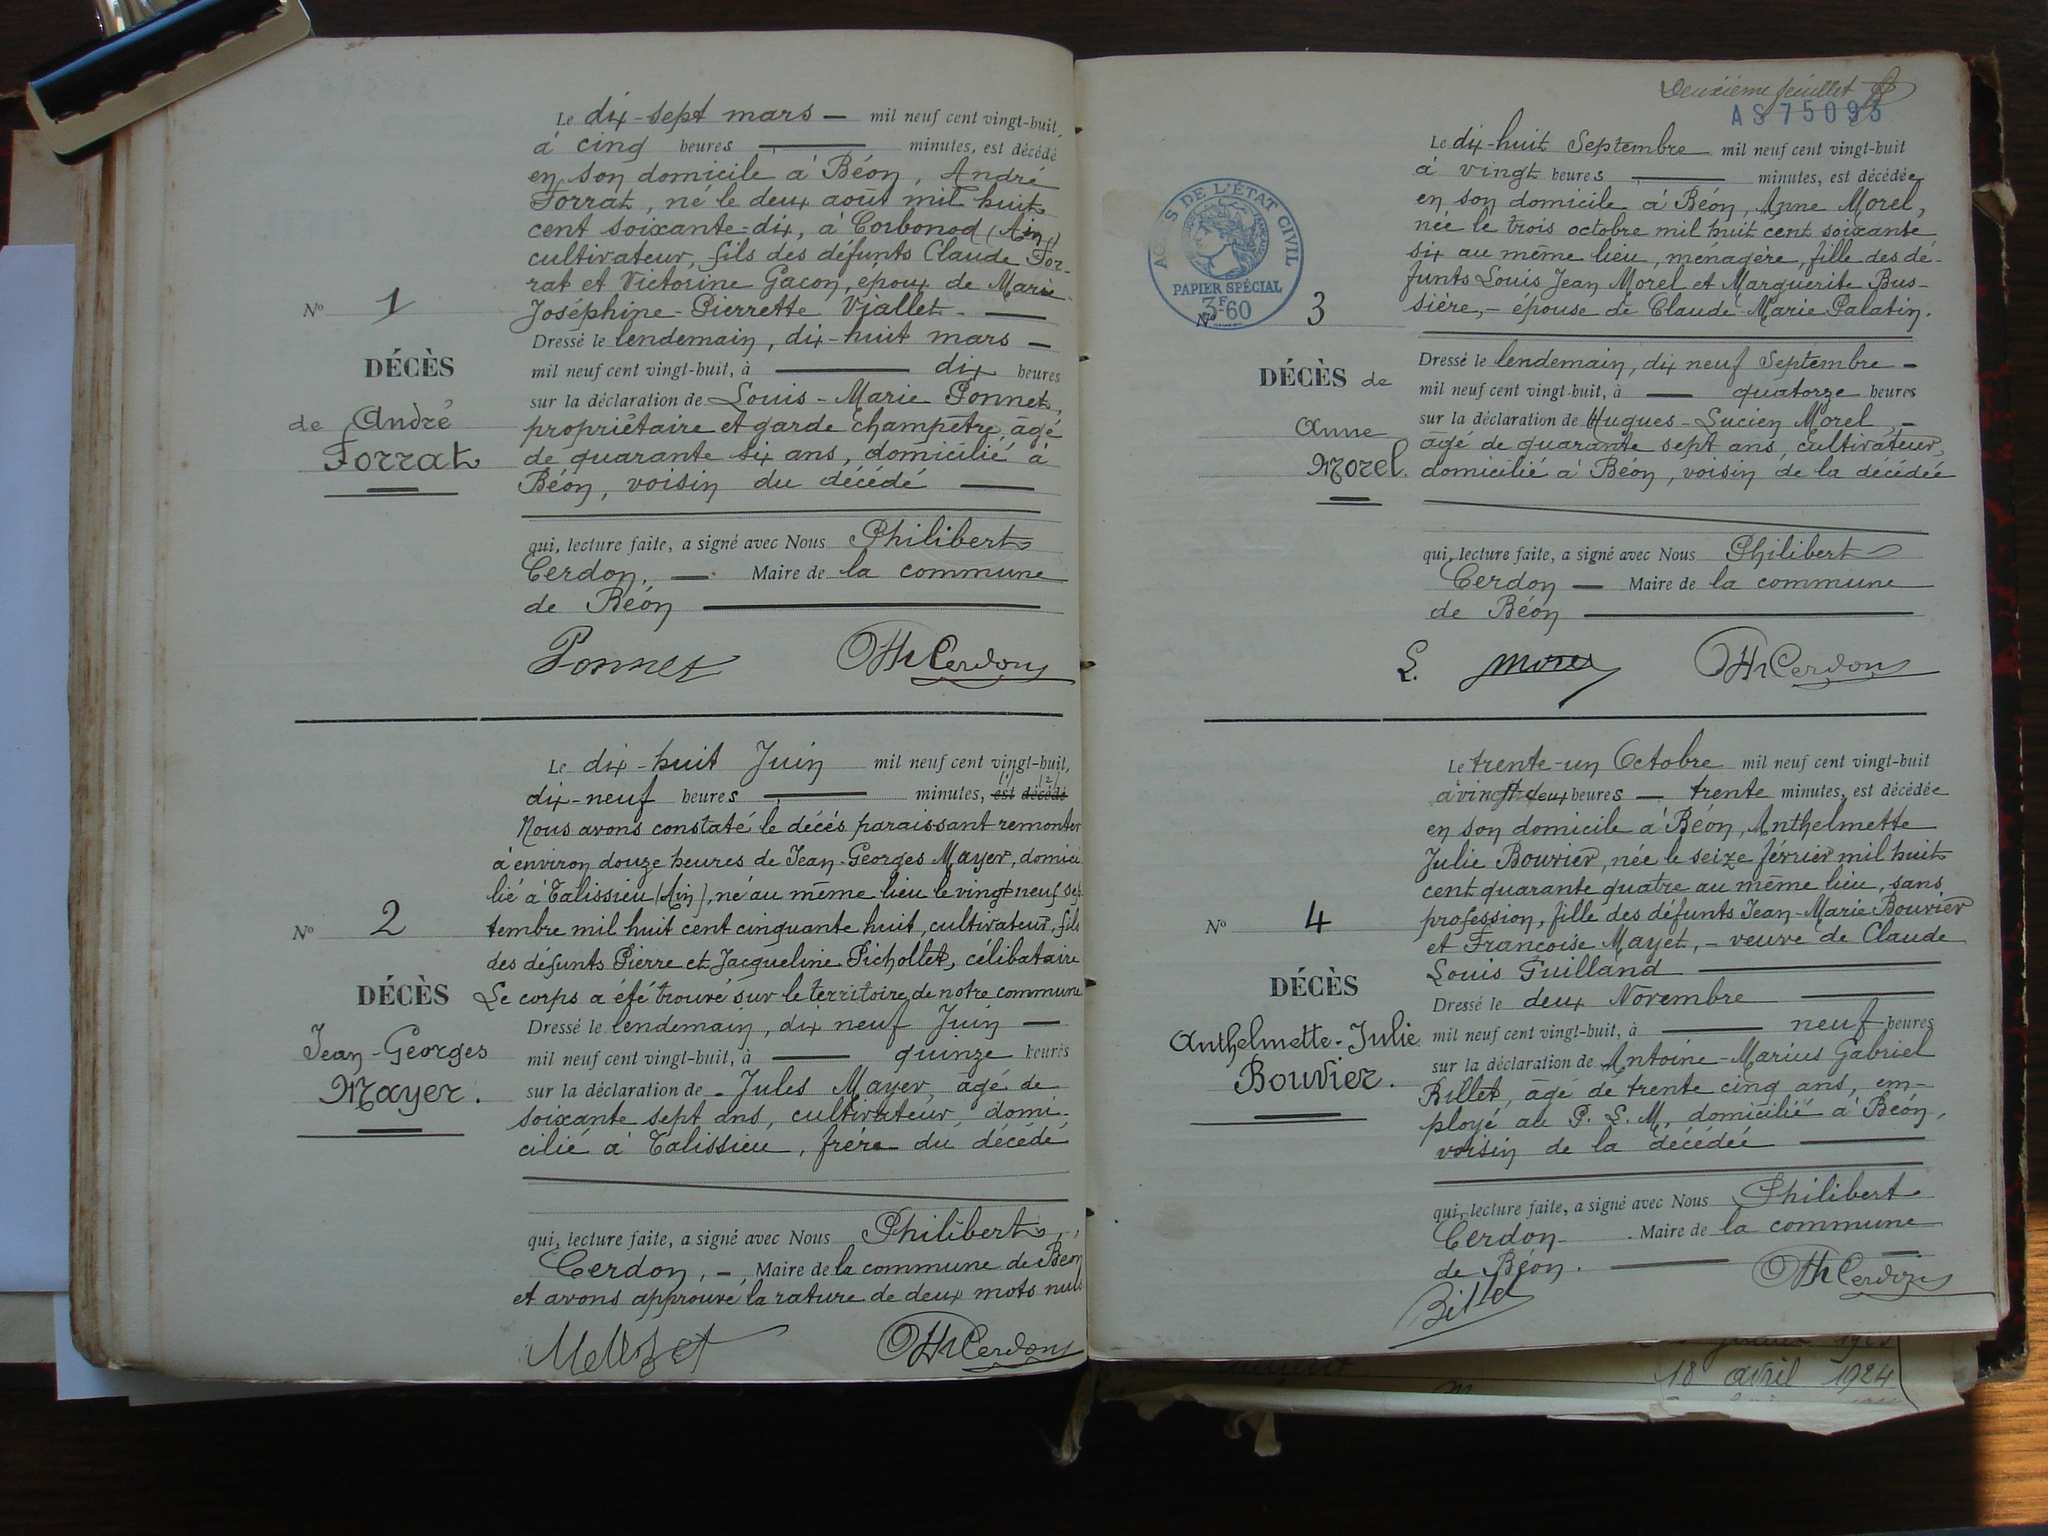 Le dix-sept mars — mil neuf cent vingt-huit,
à cinq heures — minutes, est décédé
en son domicile à Béon, André
Forrat, né le deux août mil huit
cent soixante-dix, à Corbonod (Ain)
cultivateur, fils des défunts Claude For-
rat et Victorine Gacon, époux de Marie
Nº 1
Joséphine-Pierrette Viallet. —
Dressé le lendemain, dix-huit mars —
DÉCÈS
mil neuf cent vingt-huit, à — dix heures
sur la déclaration de Louis-Marie Ponnet,
de André
propriétaire et garde champêtre, âgé
Forrat
de quarante six ans, domicilié à
Béon, voisin du décédé —
qui, lecture faite, a signé avec Nous Philibert
Cerdon, — Maire de la commune
de Béon —
Ponnet Ph Cerdon
Le dix-huit Juin mil neuf cent vingt-huit,
dix-neuf heures — minutes, est décédé
Nous avons constaté le décès paraissant remonter
à environ douze heures de Jean-Georges Mayer, domici
lié à Talissieu (Ain), né au même lieu le vingt neuf sep
Nº 2
tembre mil huit cent cinquante huit, cultivateur, fils
des défunts Pierre et Jacqueline Pichollet, célibataire
DÉCÈS
Le corps a été trouvé sur le territoire de notre commune
Dressé le lendemain, dix neuf Juin —
Jean-Georges
mil neuf cent vingt-huit, à — quinze heures
Mayer.
sur la déclaration de Jules Mayer, âgé de
soixante sept ans, cultivateur domi-
cilié à Talissieu, frère du décédé
qui, lecture faite, a signé avec Nous Philibert,
Cerdon, — Maire de la commune de Béon
et avons approuvé la rature de deux mots nuls
Ph Cerdon
Deuxième feuillet
AS75093
Le dix-huit Septembre mil neuf cent vingt-huit
à vingt heures — minutes, est décédée
en son domicile à Béon, Anne Morel,
née le trois octobre mil huit cent soixante
six au même lieu, ménagère, fille des dé-
funts Louis Jean Morel et Marguerite Bus-
S DE L'ÉTAT CIVIL
PAPIER SPÉCIAL
3F60
Nº 3
sière, — épouse de Claude-Marie Palatin.
Dressé le lendemain, dix neuf Septembre —
DÉCÈS de
mil neuf cent vingt-huit, à — quatorze heures
sur la déclaration de Hugues-Lucien Morel, —
Anne
âgé de quarante sept ans, cultivateur,
Morel.
domicilié à Béon, voisin de la décédée
qui, lecture faite, a signé avec Nous Philibert
Cerdon — Maire de la commune
de Béon —
L. Morel Ph Cerdon
Le trente-un Octobre mil neuf cent vingt-huit
à vingt deux heures — trente minutes, est décédée
en son domicile à Béon, Anthelmette
Julie Bouvier, née le seize février mil huit
cent quarante quatre au même lieu, sans
Nº 4
profession, fille des défunts Jean-Marie Bouvier
et Françoise Mayet, — veuve de Claude
DÉCÈS
Louis Guilland —
Dressé le deux Novembre —
Anthelmette-Julie
mil neuf cent vingt-huit, à — neuf heures
Bouvier.
sur la déclaration de Antoine-Marius Gabriel
Billet, âgé de trente cinq ans, em-
ployé au P. L. M. domicilié à Béon,
voisin de la décédée —
qui, lecture faite, a signé avec Nous Philibert
Cerdon — Maire de la commune
de Béon. —
Billet Ph Cerdon
18 avril 1924